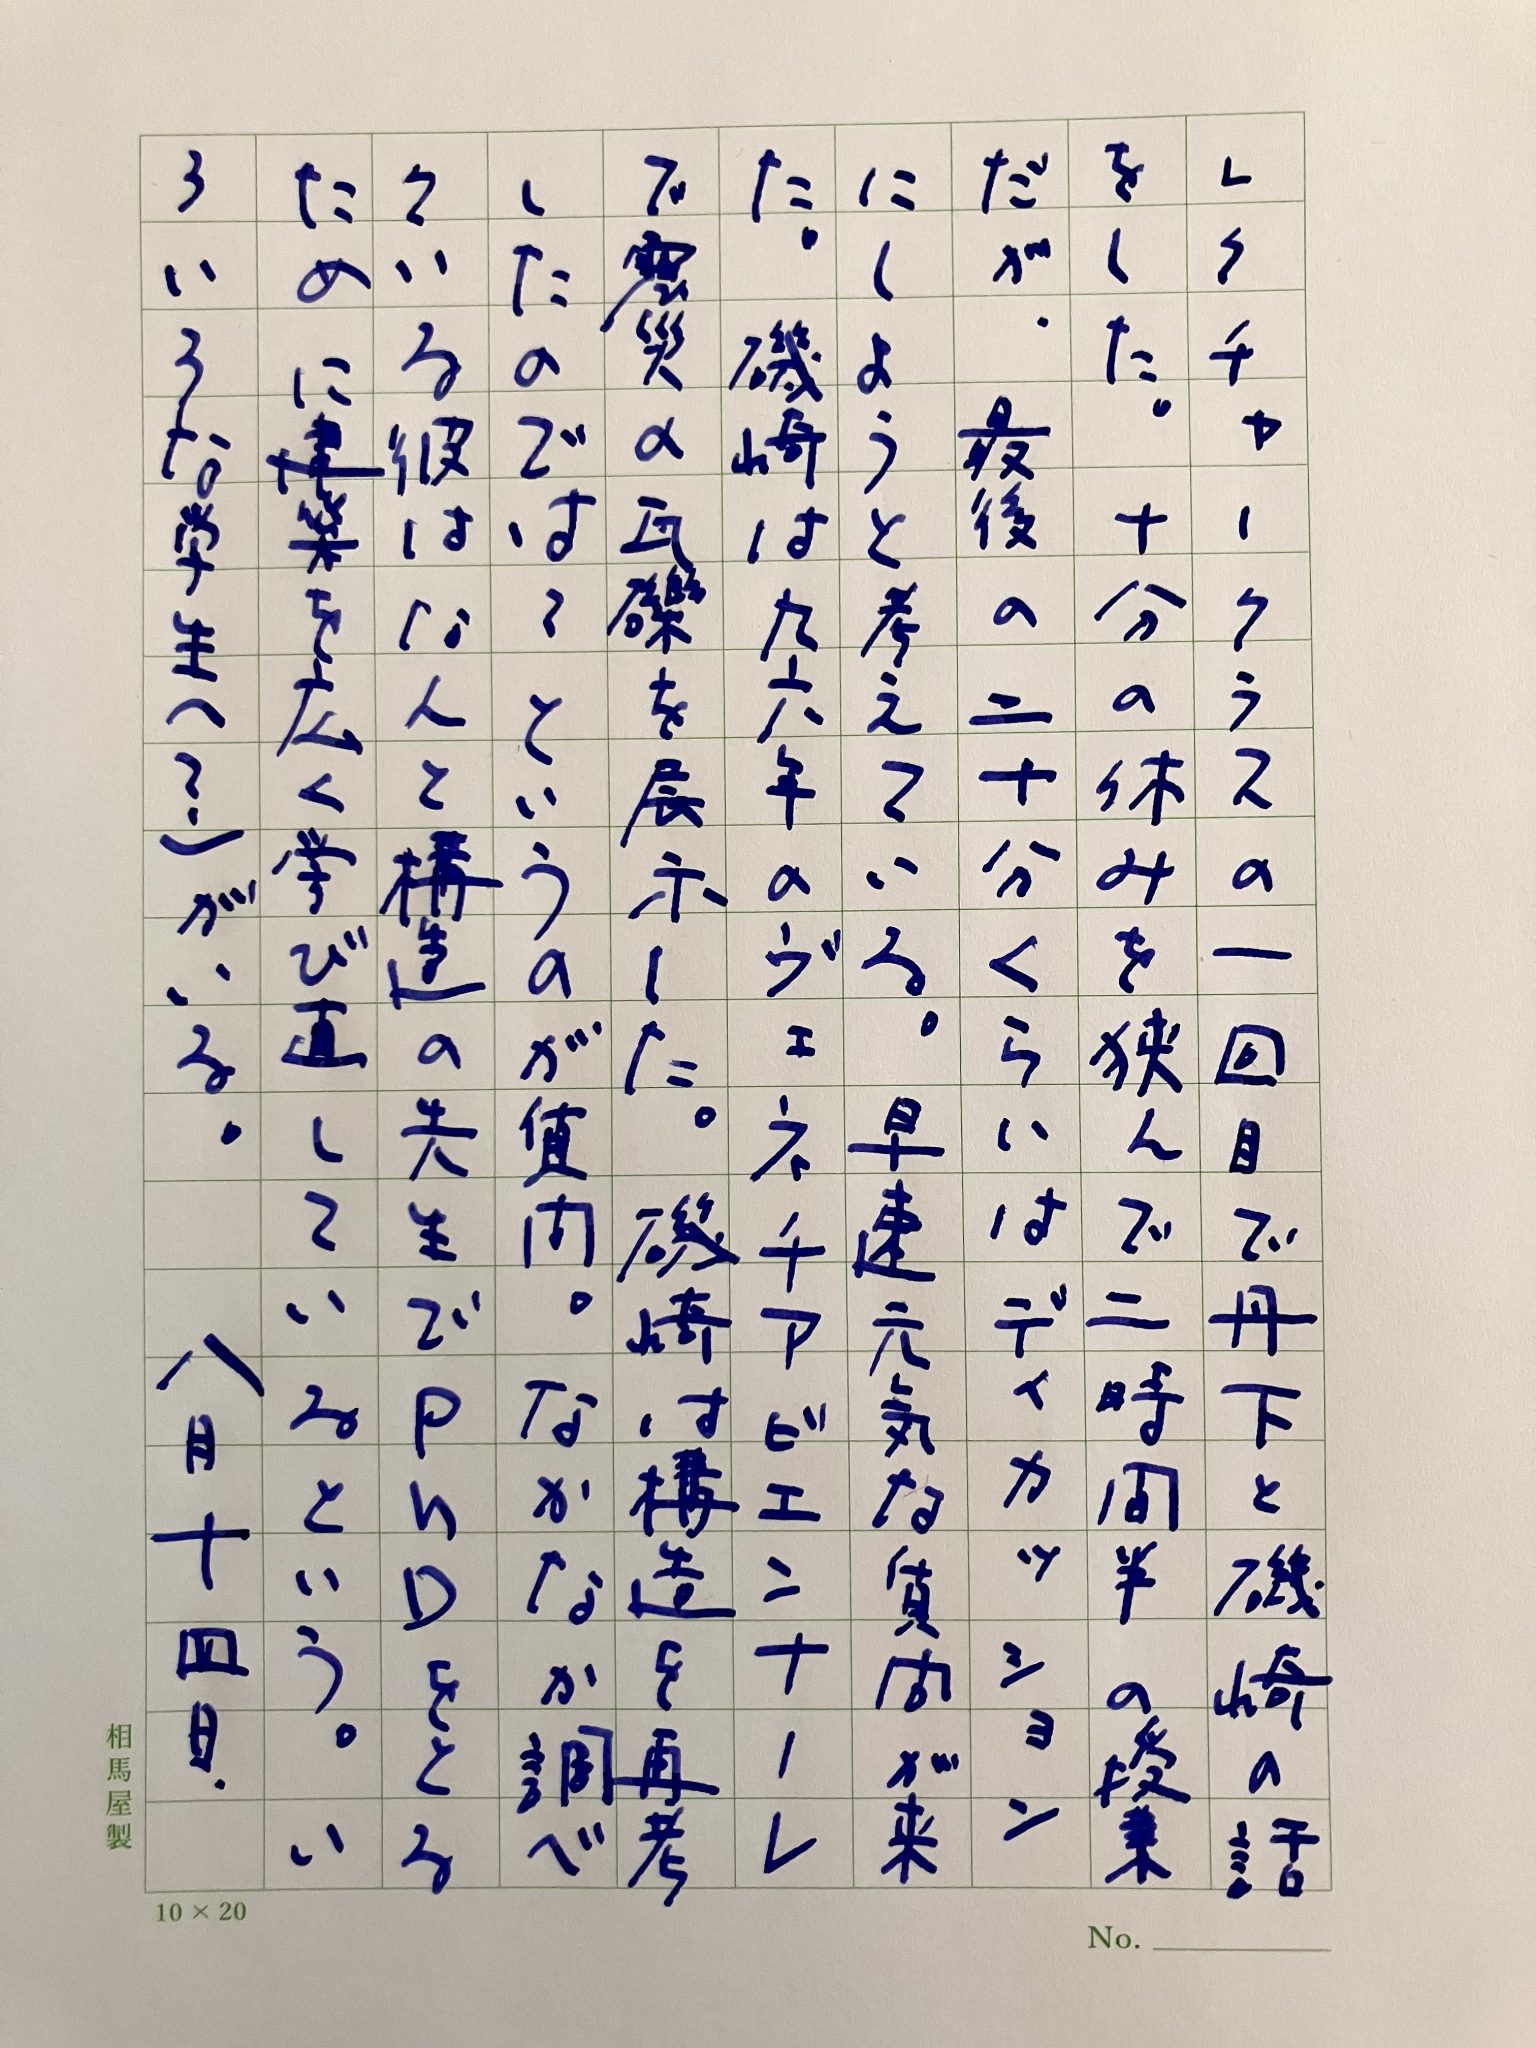 レクチャークラスの一回目で丹下と磯崎の話
をした。十分の休みを挟んで二時間半の授業
だが、最後の二十分くらいはディカッション
にしようと考えている。早速元気な質問が来
た。磯崎は九六年のヴェネチアビエンナーレ
で震災の瓦礫を展示した。磯崎は構造を再考
したのでは?というのが質問。なかなか調べ
ている彼はなんと構造の先生でPhDをとる
ために建築を広く学び直しているという。い
ろいろな学生(?)がいる。 八月十四日.
相馬屋製
10×20
No.